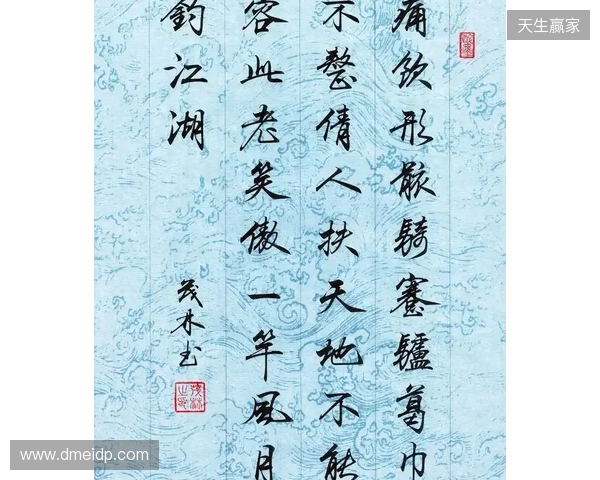 天生赢家
痛饮形骸騎蹇驢葛巾
不整倩人扶天地不能
容此老笑傲一竿風月
釣江湖
茂林书
www.dmeidp.com